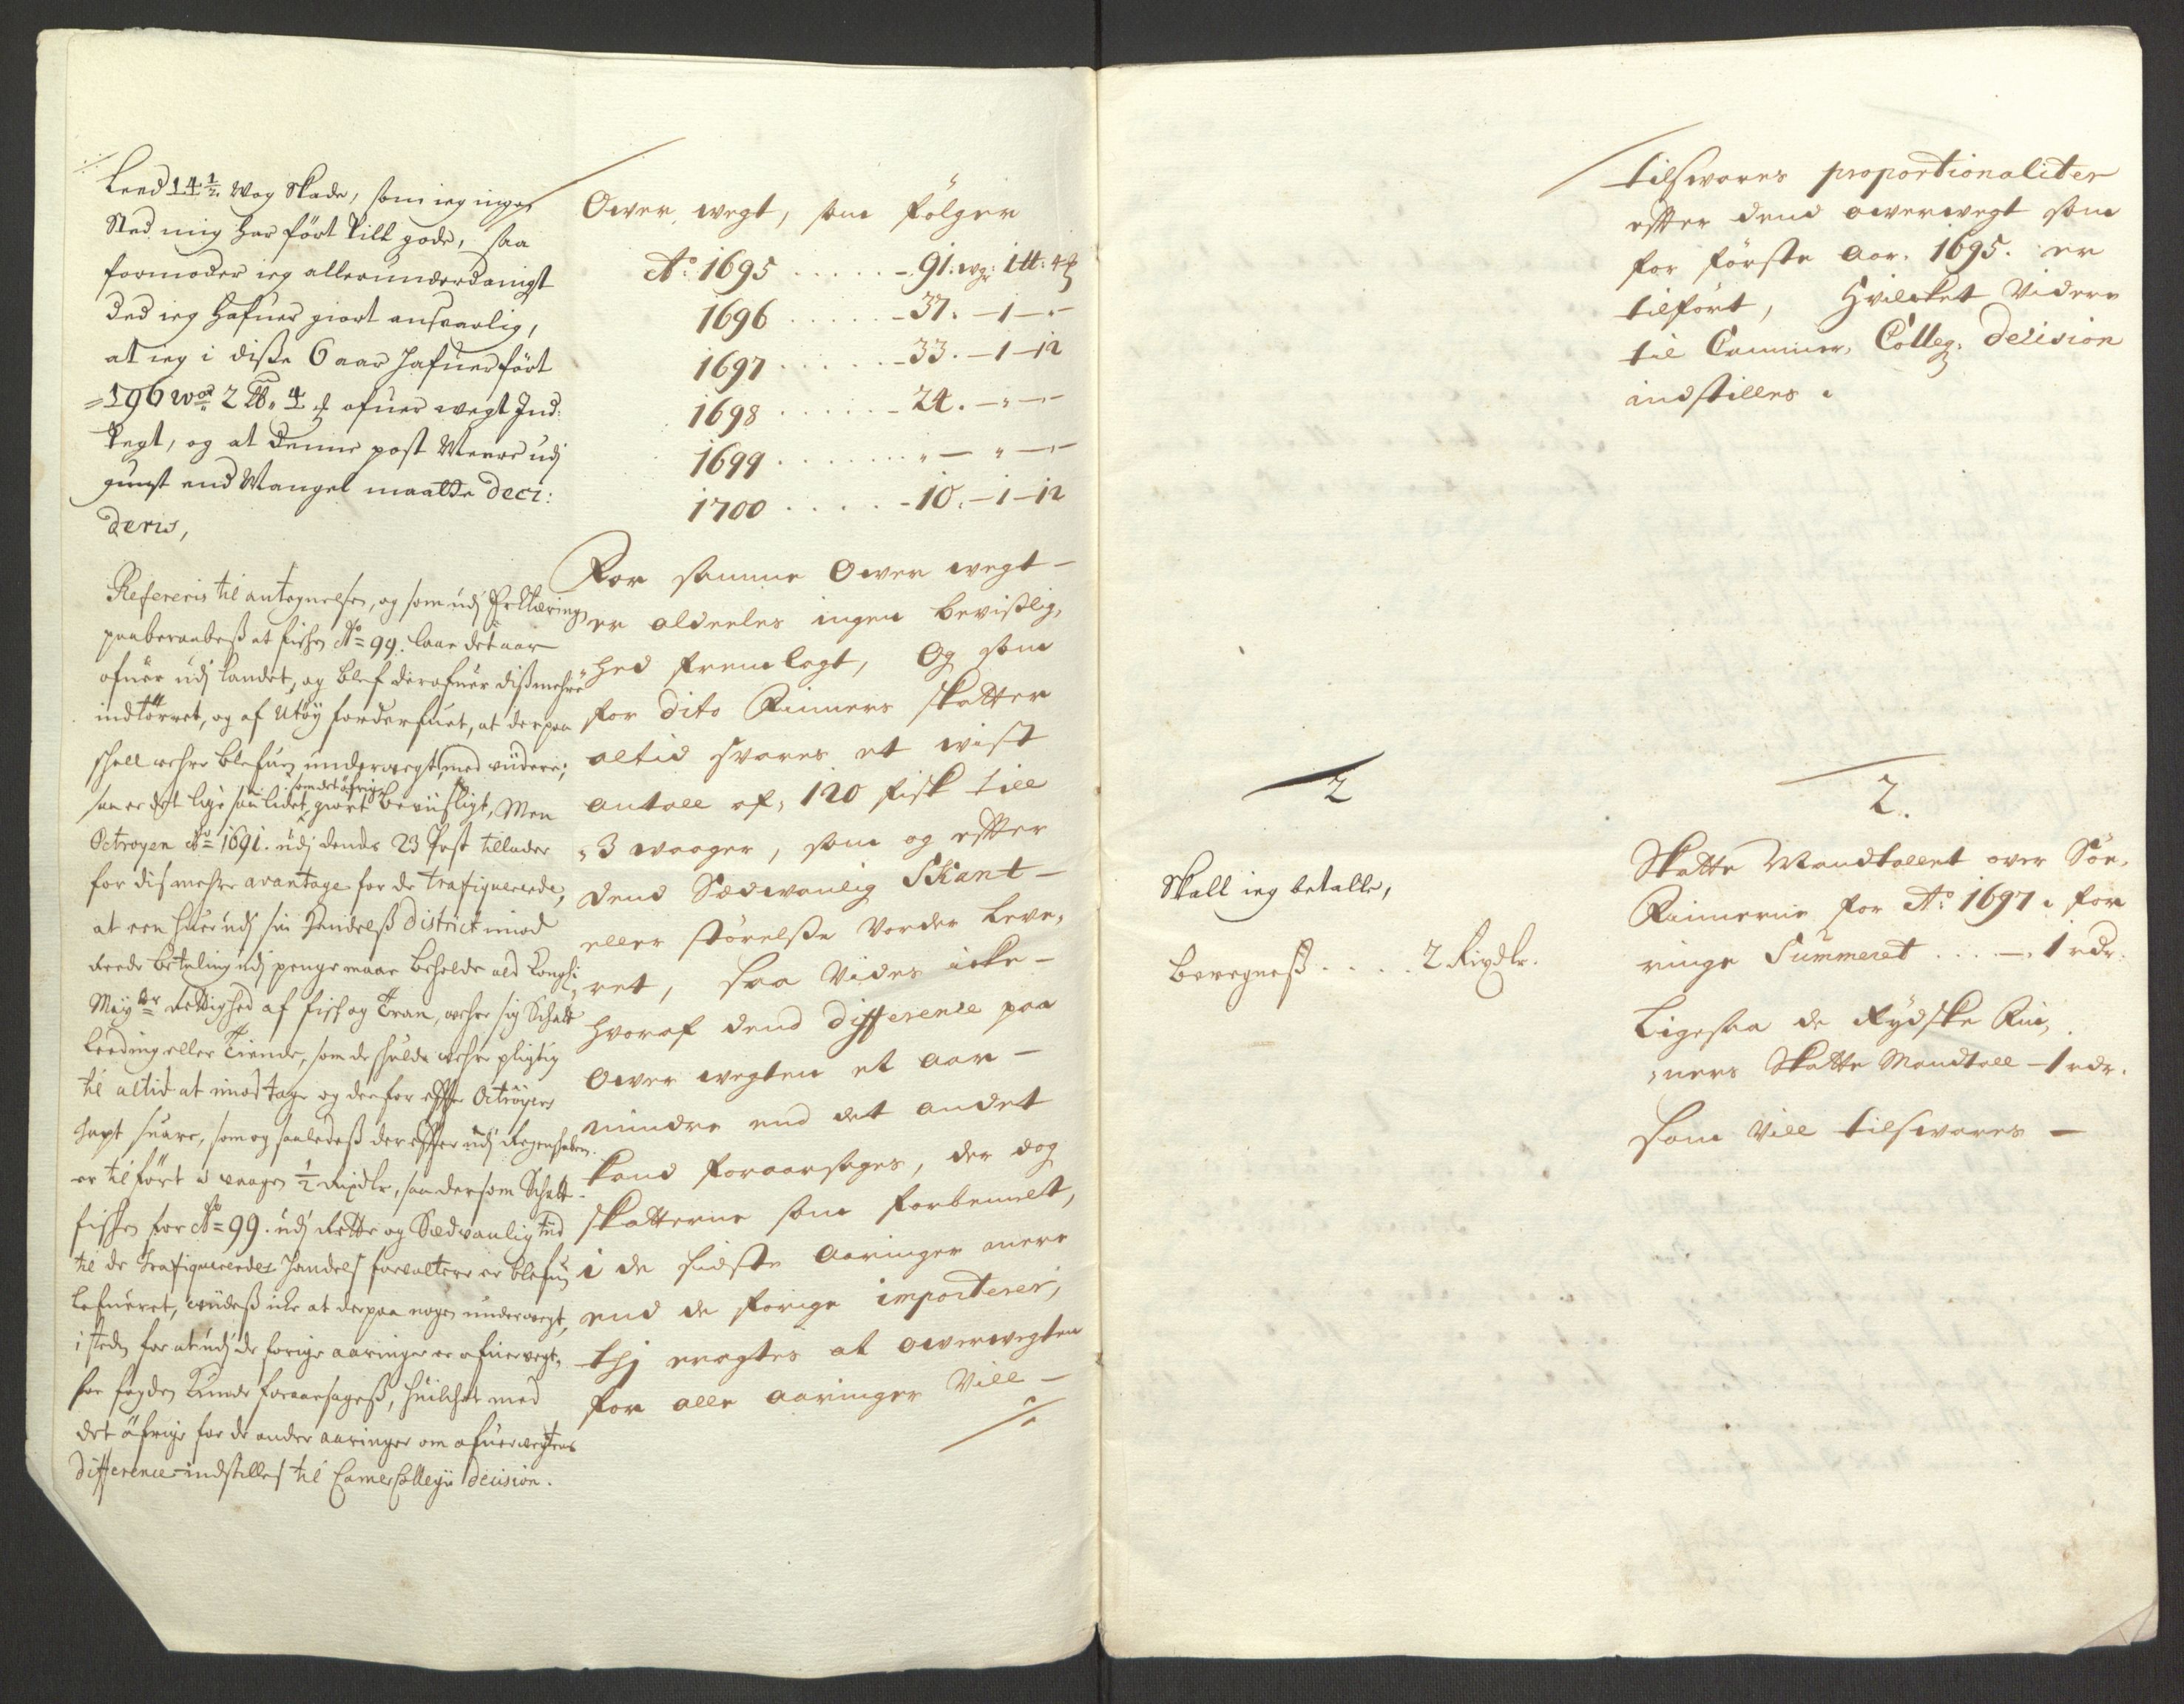 Leed 14 1/2 Wog Skade, som ieg ingen
Sted mig har fört till gode, saa
formoder ieg allerunderdanigst
ded ieg hafuer giort ansvarlig,
at ieg i disse 6 aar hafuer fört
196 wog 2 lb 4 ofuer wegt Ind:
tegt, og at denne post Meere udj
gunst end Mangel maatte deci:
deris,
Refereris til antegnelsen, og som udj Erklæringen
paaberaabess at fisken Ao 99. laae det aar
ofuer udj landet, og blef derofuer dissmehre
indtörret, og af Utöy forderfuet, at derpaa
skall wehre blefuen underwegt, med videre;
som det öfrige
saa er det lige saa lidet giort beviisligt, Men
Octroyen Ao 1691. udj dends 23 Post tillader
for dissmehre avantage for de trafiquerende,
at een huer udj sin Handelss district imod
reede betaling udj penge maae beholde ald Kongl:
Mayts rettighed af fisk og Tran, wehre sig Schatt
Leeding eller Tiende, som de skulde wehre pligtig
til altid at imod tage og derfor effter Octroyens
svare, som og saaledess dereffter udj Regenskaben
er tilfört a waagen 1/2 Rixdlr, saa dersom Schatt
fisken for Ao 99. udj rette og Sædvanlig tid
til de trafiquerendes Handels forvaltere er blefuen
lefueret, viidess icke at derpaa nogen underwegt,
i steden for at udj de forige aaringer er ofuerwegt,
for fogden kunde foraarsagess, huilchet med
det öfrige for de andre aaringer om ofuerwegtens
difference indstilles til CamerCollegii decision.
Ower wegt, som fölger
Ao 1695 ..... 91: wgr: 1 lb: 4
1696 ..... 37. — 1 — „ —
1697 ..... 33. — 1 — 12
1698 ..... 24. — „ — „ —
1699 ....... „ — „ — „ —
1700 ..... 10. — 1 — 12
For samme Ower wegt —
er aldeeles ingen bevislig,
hed fremlagt, Og som
for dito Finners skatter
altid svares et wist
antall af, 120 fisk till
3 waager, som og effter
dend Sædwanlig Skant —
eller störelsse vorder leve,
ret, saa vides icke —
hvoraf dend difference paa
ower wegten et aar —
mindre end det andet
kand foraarsages, der dog
skatterne som forbemelt,
i de sidste aaringer mere
end de forige importerer,
thj eragtes at owerwegten
for alle aaringer vill —
tilswares proportionaliter
effter dend owerwegt som
for förste aar. 1695. er
tilfört, Hvilcket videre
til Cammer, Colleg: decision
indstilles.
2
Skall ieg betalle,
beregness ..... 2 Rixdlr.
2.
Skatte Mandtallet over Söe,
Finnerne for Ao 1697. for
ringe Summeret .... — 1 rdr.
Ligesaa de Rydske Fin,
ners Skatte Mandtall — 1 rdr.
Som vill tilswares —